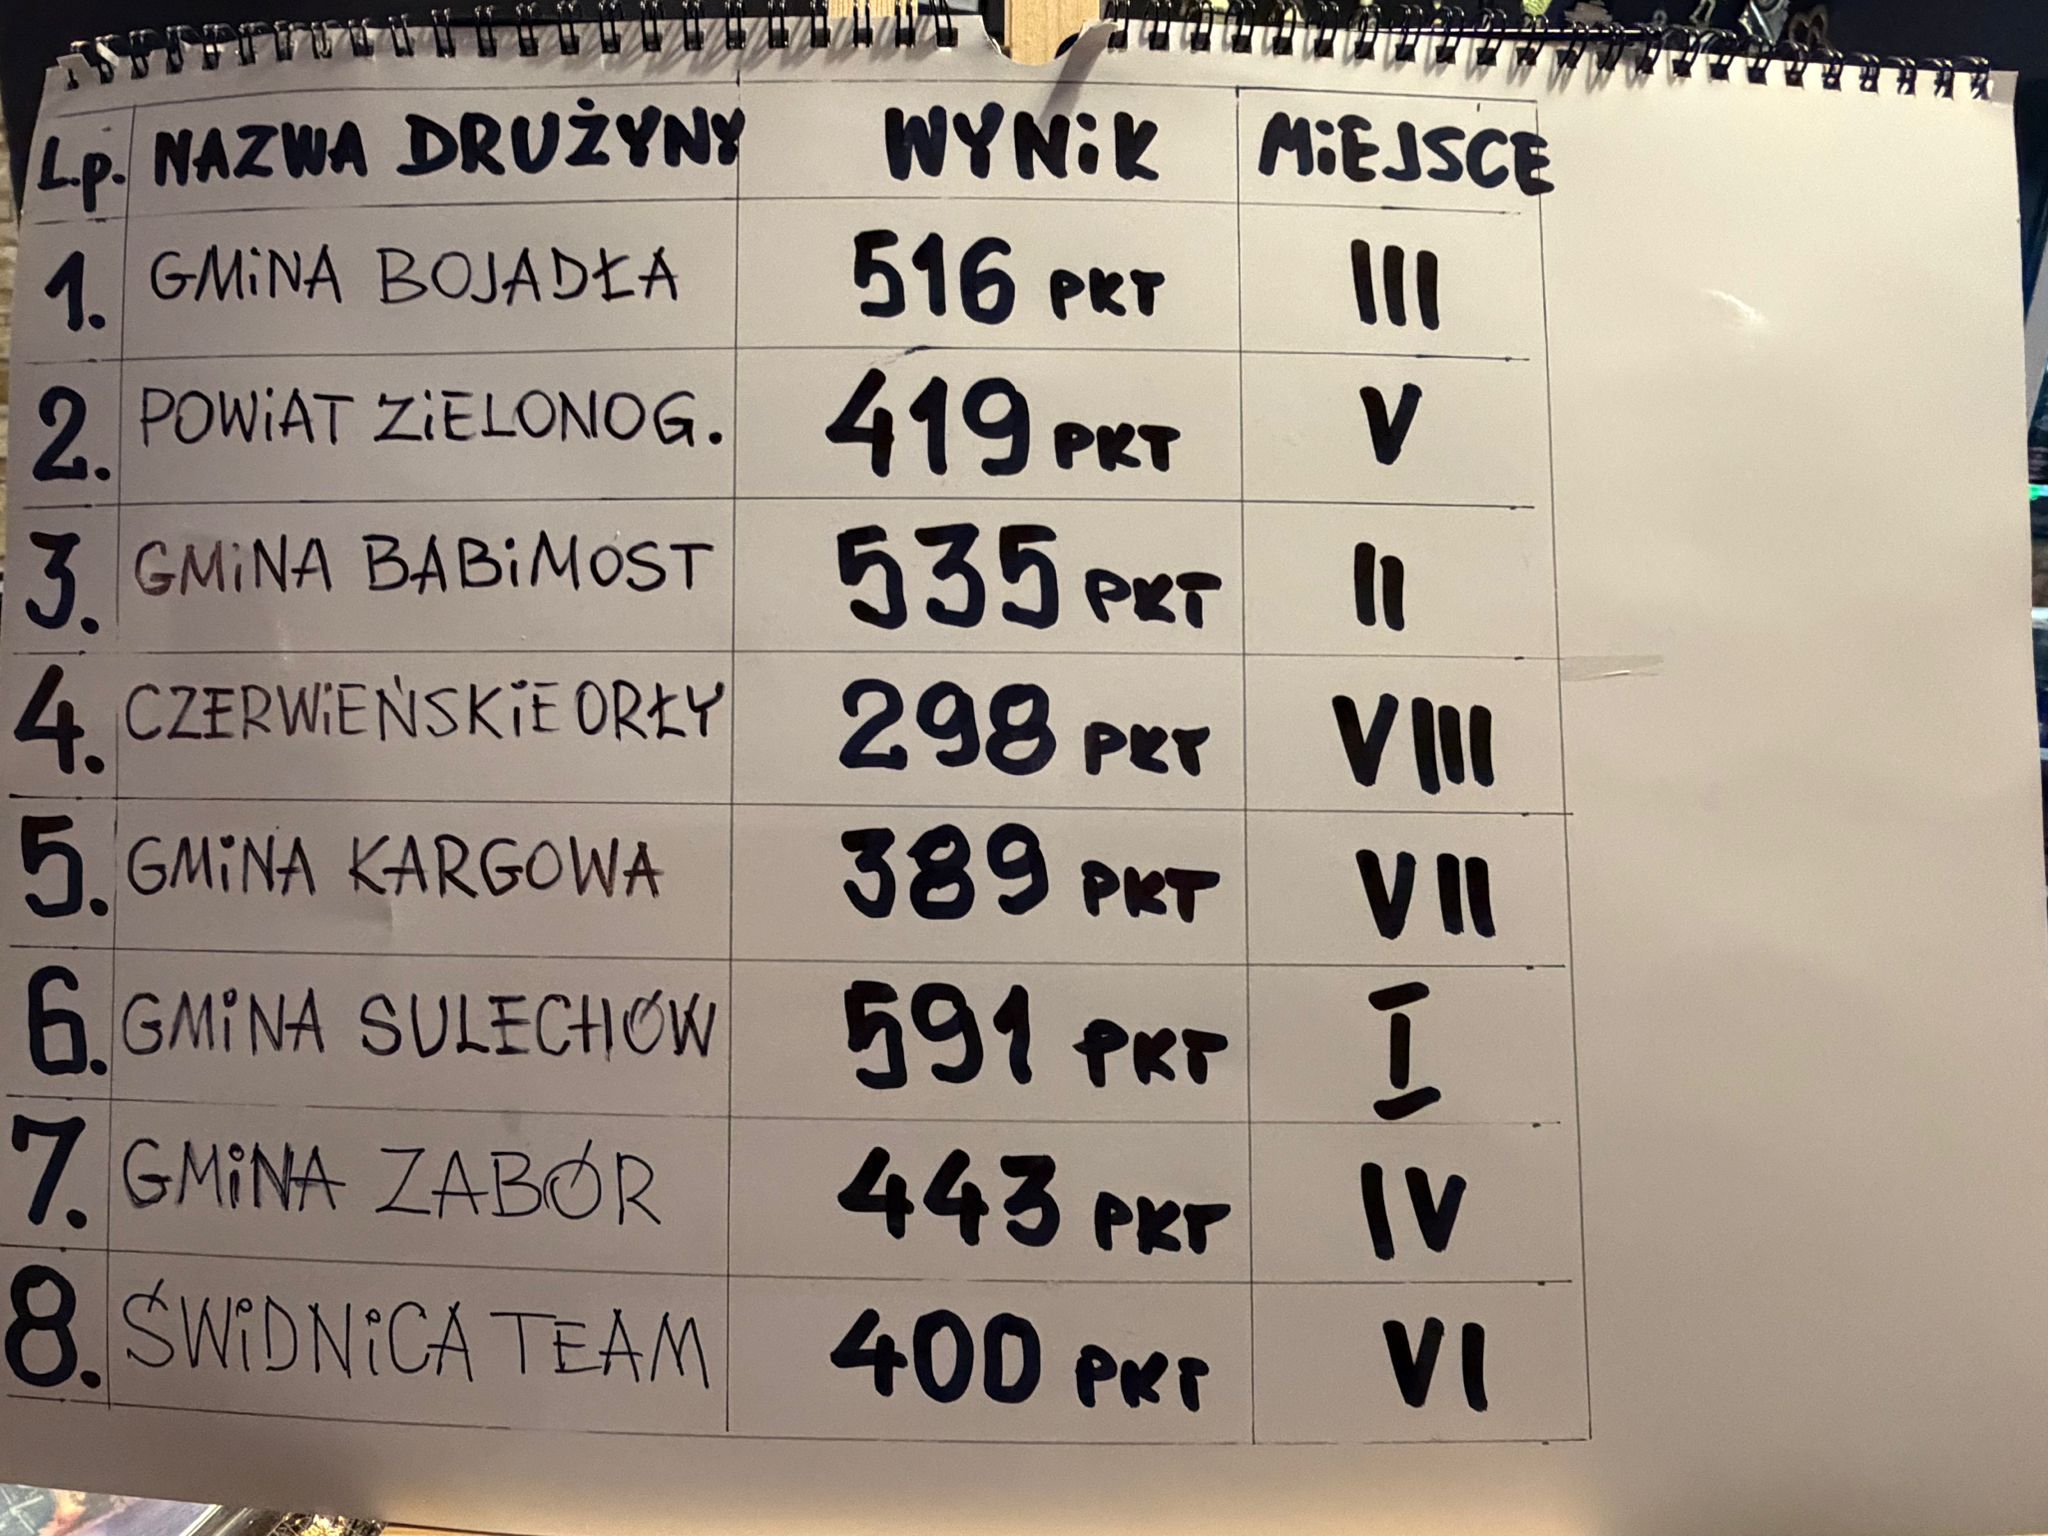 L.p. NAZWA DRUŻYNY WYNiK MiEJSCE
1. GMiNA BOJADŁA 516 PKT III
2. POWiAT ZiELONOG. 419 PKT V
3. GMiNA BABiMOST 535 PKT II
4. CZERWiEŃSKiE ORŁY 298 PKT VIII
5. GMiNA KARGOWA 389 PKT VII
6. GMiNA SULECHÓW 591 PKT I
7. GMiNA ZABÓR 443 PKT IV
8. ŚWiDNiCA TEAM 400 PKT VI